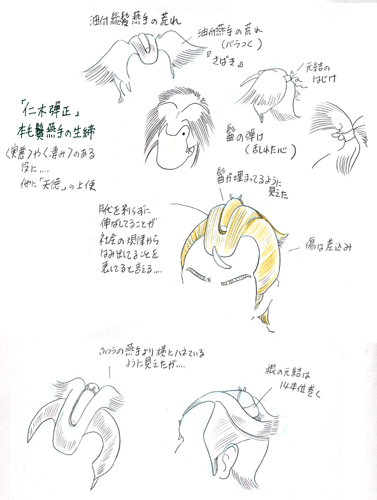 油付総髪燕手の荒れ
油付燕手の荒れ
(バラつく)
『さばき』
元結の
はじけ
「仁木弾正」
本毛鬢燕手の生締
<実悪>や<凄み>のある
役に....
他に「天徳」の上使
髷の弾け
(乱れた心)
髷が埋まってるように
見えた
月代を剃らずに
伸ばしてることが
社会の規律から
はみ出してることを
表してると言える....
傷は差込み
ふつうの燕手より横とハネている
ように見えたが....
根の元結は
14本位巻く